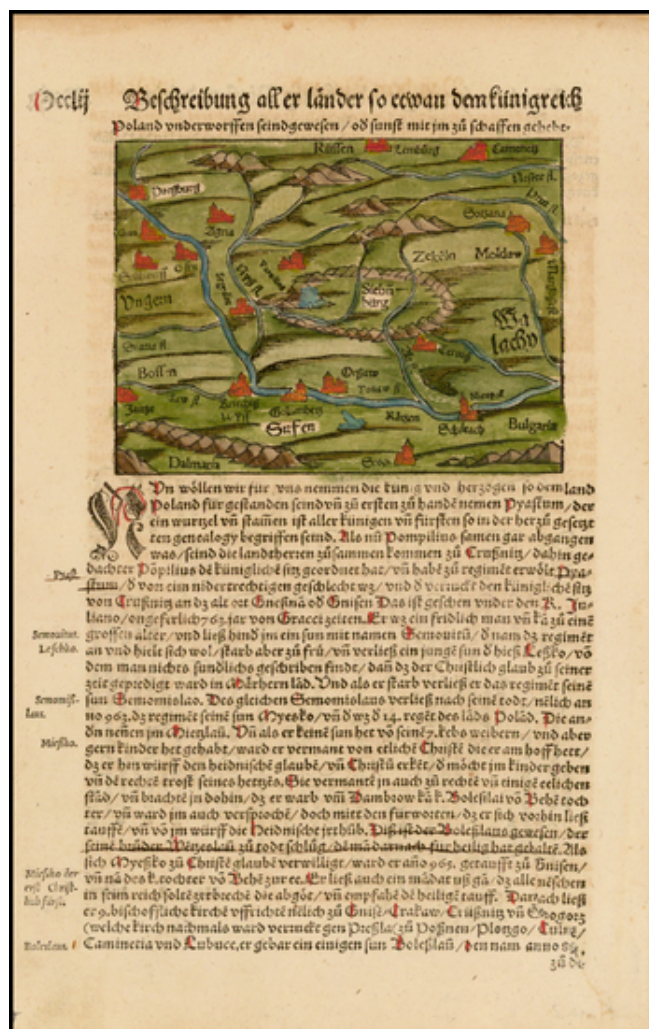 Mcclij Beschreibung aller länder so etwan dem künigreich
Poland vnderworffen seind gewesen / od sunst mit jm zů schaffen gehebt.
Rüssen Lemburg Camenetz
Nester fl.
Prut fl.
Presburg
Sotzaua
Agria
Zekeln Moldaw
Vngern
Sieben
bürg
Wa
lachy
Bossen
Orsaw
Tonaw fl.
Sirfen
Bulgaria
Dalmatia
NVn wöllen wir für vns nemmen die künig vnd herzogen so dem land
Poland für gestanden seind vñ zů ersten zů handē nemen Pyastum / der
ein wurtzel vñ stamen ist aller künigen vñ fürsten so in der herzů gesetzt
ten genealogy begriffen seind. Als nů Pompilius samen gar abgangen
was / seind die landtherren zůsammen kommen zů Crußnitz / dahin ge-
dachter Pōpilius dē künigliche sitz geordnet hat / vñ habē zů regimēt erwölt Pya-
Piast.
stum / d von eim nidertrechtigen geschlecht wz / vnd d verruckt den künigliche sitz
von Crußnitz an dz alt ort Gnesnā od Gnisen Das ist geschen vnder den K. Ju-
liano / ongeferlich 762. jar von Gracci zeiten. Er wz ein fridlich man vñ kā zů einē
Semouitus.
grossen alter / vnd ließ hind jm ein sun mit namen Semouitū / d nam dz regimēt
Leschko.
an vnd hielt sich wol / starb aber zů frů / vñ verließ ein jungē sun d hieß Leßko / vō
dem man nichts sundlichs geschriben findt / dañ dz der Christlich glaub zů seiner
zeit geprediget ward in Märhern lād. Vnd als er starb verließ er das regimēt seinē
Semomis-
laus.
sun Semomislao. Des gleichen Semomislaus verließ nach seinē todt / nēlich an
no 963. dz regimēt seinē sun Myesko / vñ d wz d 14. regēt des lāds Polād. Die an-
Miesko.
dn neñen jm Mietzlaū. Vñ als er keinē sun het vō seinē 7. kebs weibern / vnd aber
gern kinder het gehabt / ward er vermant von etlichē Christē die er am hoff hett /
dz er hin würff den heidnischē glaubē / vñ Christū erkēt / d möcht jm kinder geben
vñ dē rechtē trost seines hertzēs. Sie vermantē jn auch zů rechtē vñ einigē eelichen
stād / vñ brachtē jn dohin / dz er warb vm̄ Dambrowkā k. Bolesilai vō Behē toch
ter / vñ ward jm auch versprochē / doch mitt den fürworten / dz er sich vorhin ließ
tauffē / vñ vō jm würff die heidnische jrthūb. Diß ist der Boleßlaus gewesen / der
seinē brůder Wētzeslaū zů todt schlůg / dē mā darnach für heilig hat gehaltē. Als
sich Myeßko zů Christē glaubē verwilligt / ward er año 965. getaufft zů Gnisen /
Miesko der
erst Christ-
lich fürst.
vñ nā des k. tochter vō Behē zur ee. Er ließ auch ein mādat uß gā / dz alle mēschen
in seim reich soltē zerbrechē die abgöt / vñ empfahē dē heiligē tauff. Darnach ließ
er 9. bischoffliche kirchē vffrichtē nēlich zů Gnisē / Crakaw / Crußnitz vñ Smogorz
(welche kirch nachmals ward verruckt gen Preßla) zů Poßnen / Plotzgo / Culm /
Boleslaus.
Caminetia vnd Lubuce, er gebar ein einigen sun Boleßlaū / den nam anno
zů dē